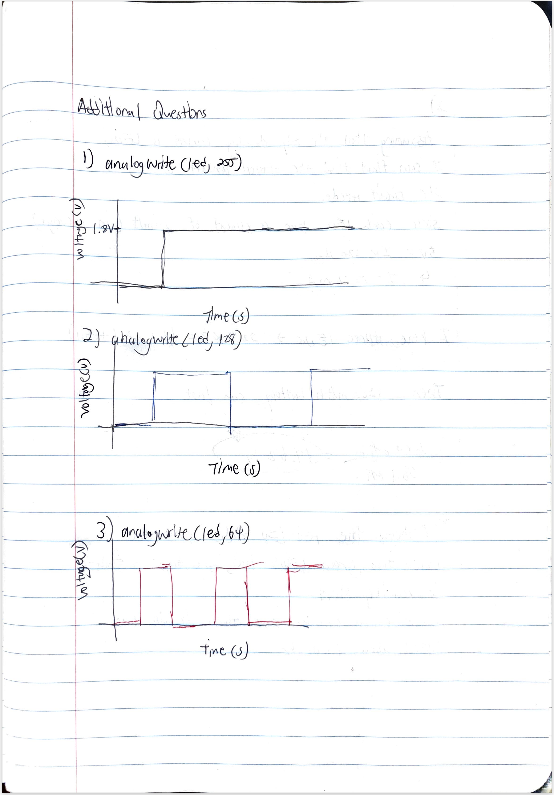 Additional Questions
1) analogwrite(led, 255)
voltage(v)
1.8V
Time(s)
2) analogwrite(led, 128)
voltage(v)
Time(s)
3) analogwrite(led, 64)
voltage(v)
time(s)